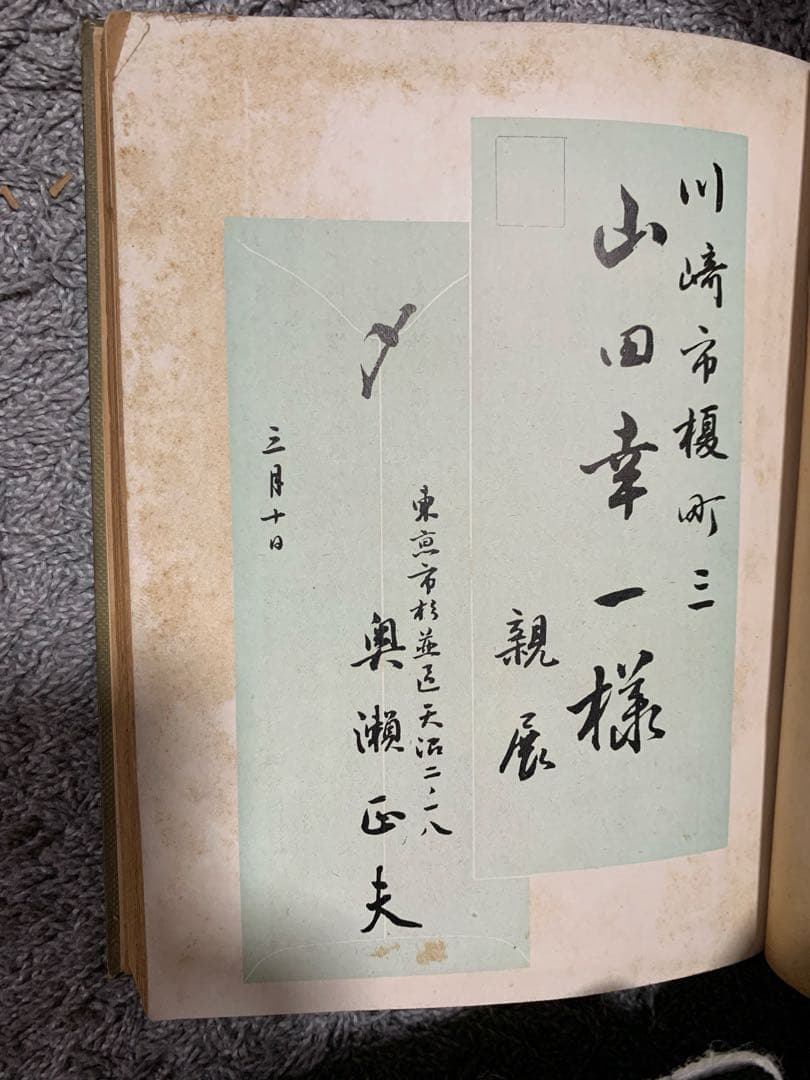 川崎市榎町三
山田幸一様
親展
〆
東京市杉並区天沼二ノ一八
奥瀬正夫
三月十日